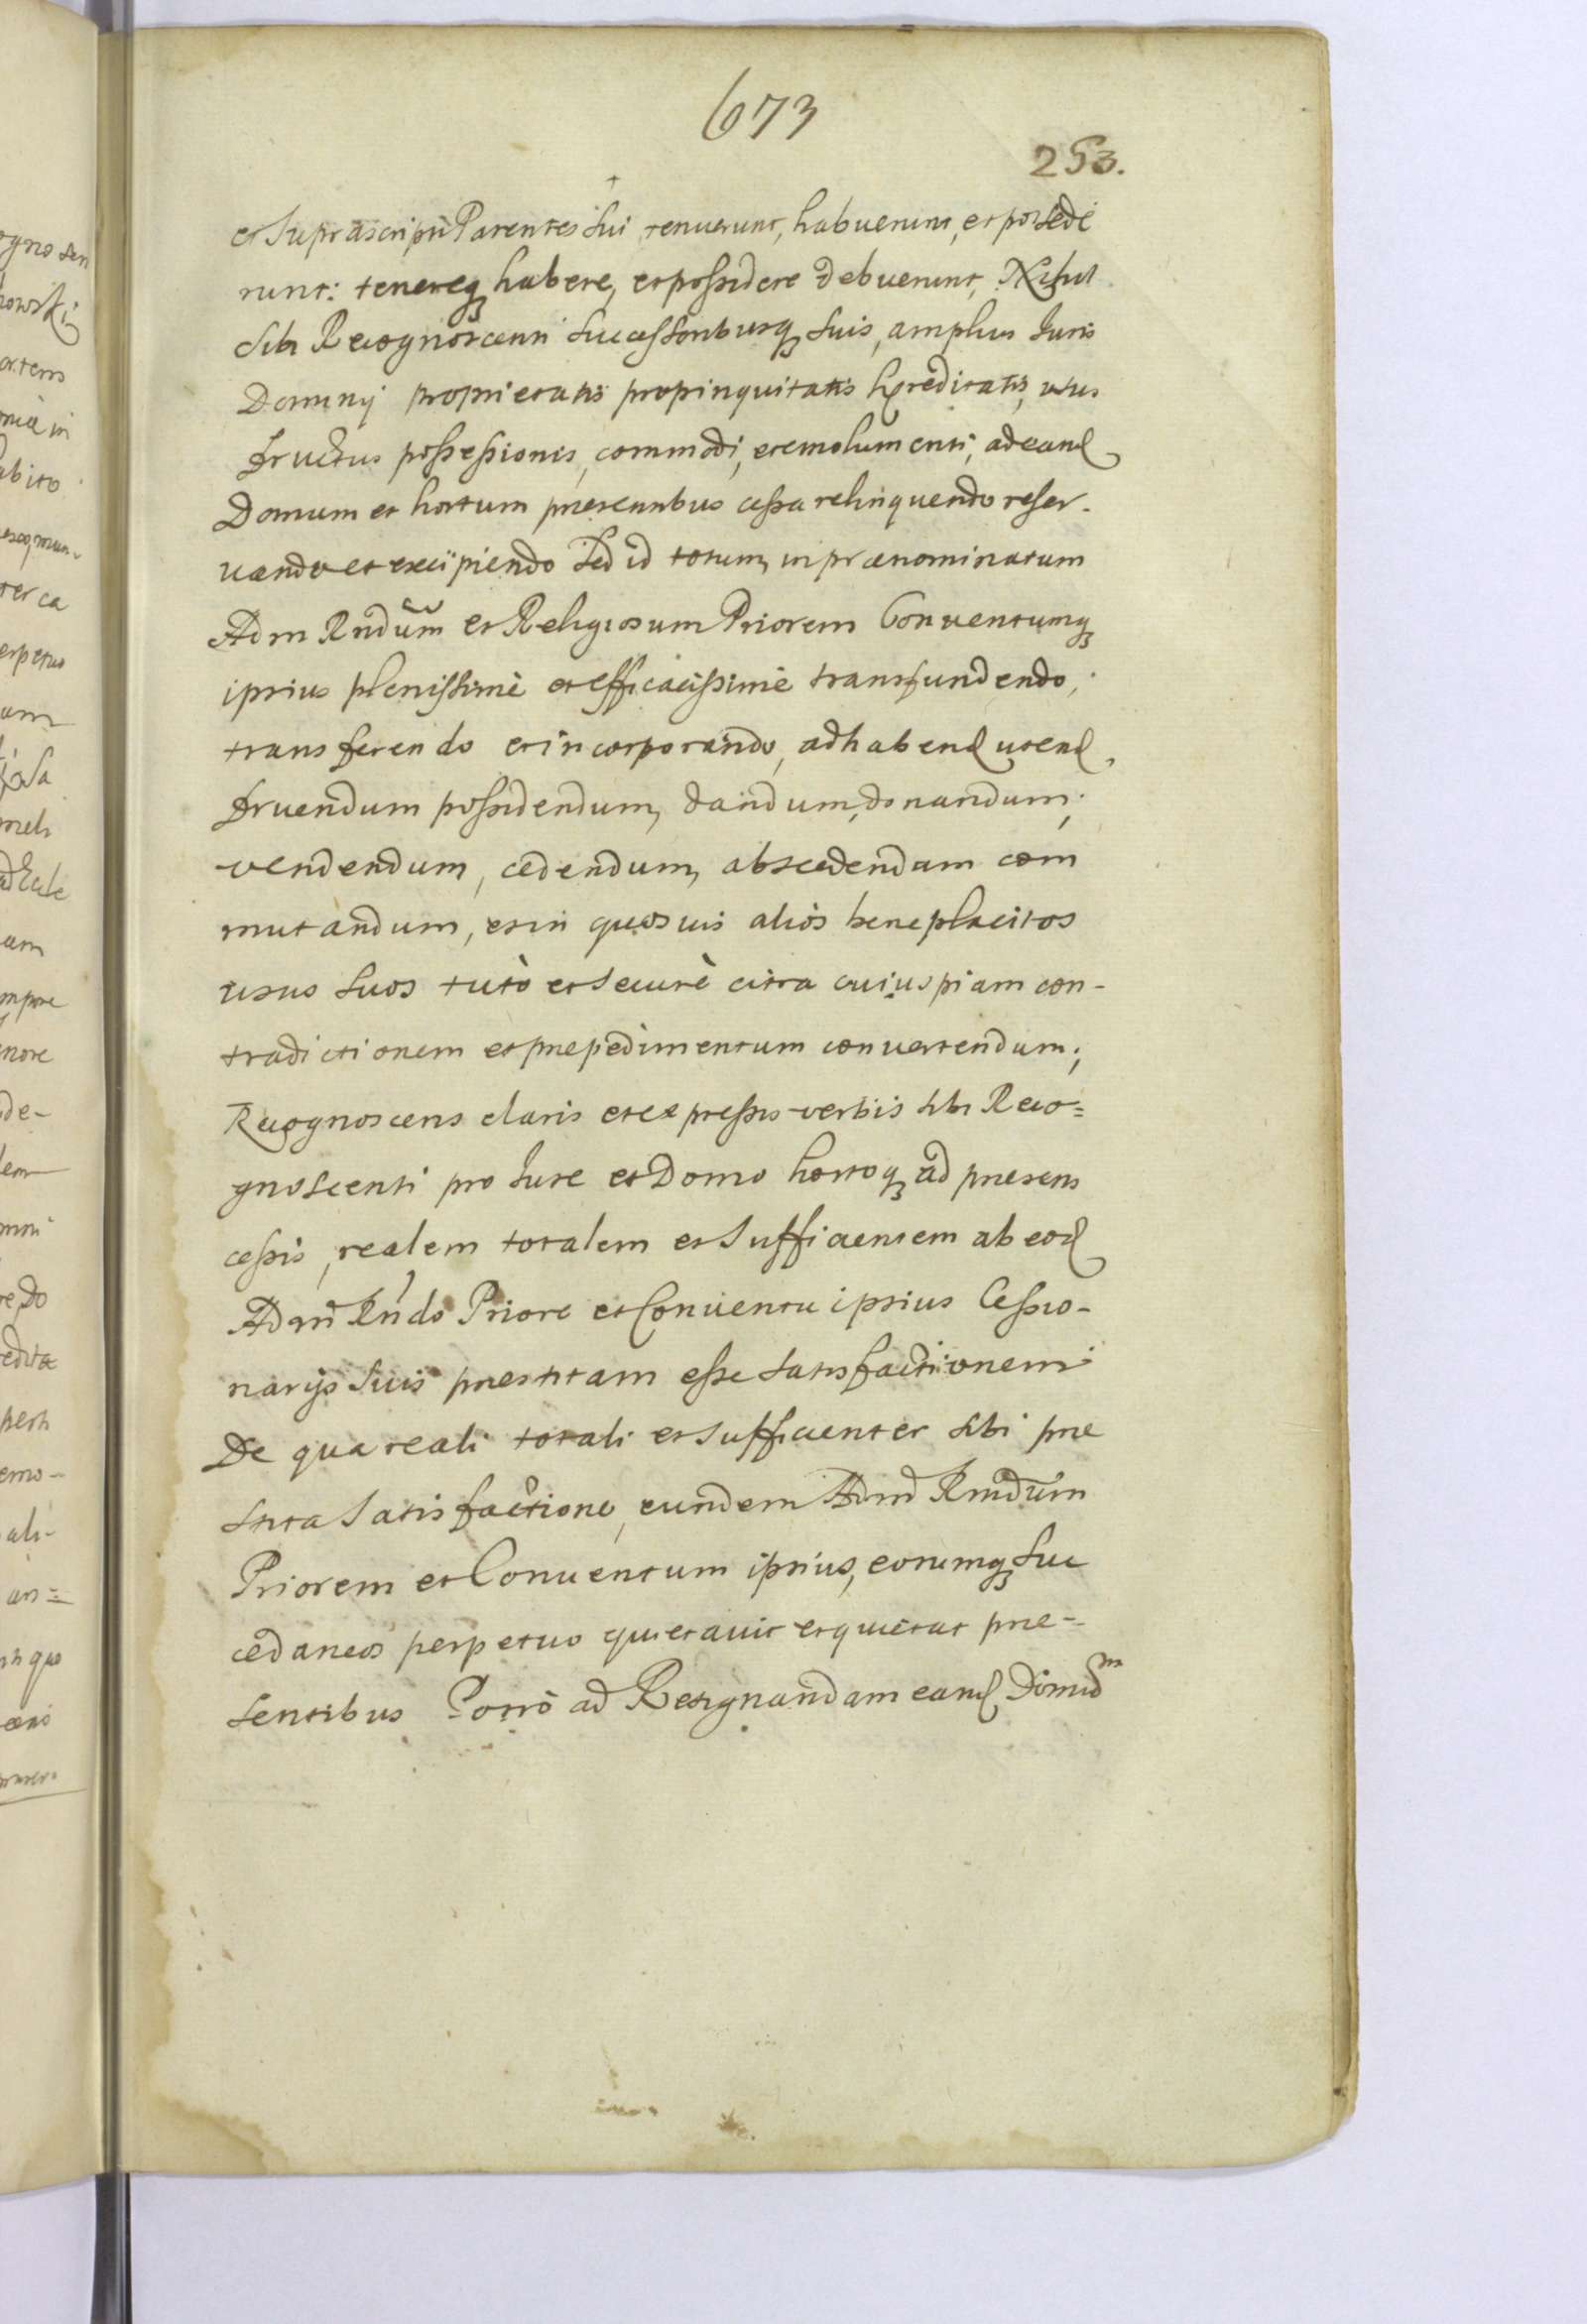 673
253.
et Supráscripti Parentes sui tenuerunt, habuerunt, et possede
runt: tenereq habere, et possidere debuerunt, Nihil
sibi Recognoscenti Successoribusq suis, amplius Iuris
Dominij proprietatis propinquitatis hęreditatis, usus
fructus possessionis, commodi, et emolumenti, ad eand
Domum et hortum praesentibus cessa relinquendo reser-
uando et excipiendo Sed id totum in praenominatum
Adm Rndum et Religiosum Priorem Conuentumq
ipsius plenissimè et efficacissimè transfundendo,
transferendo et incorporando, ad habend utend,
fruendum possidendum, dandum, donandum,
vendendum, cedendum, abscedendam com
mutandum, et in quosuis aliós beneplacitos
usus suos tutò et Securè citra cuiuspiam con-
tradictionem et praepedimentum conuertendum;
Recognoscens claris et expressis verbis sibi Reco=
gnoscenti pro Iure et Domo hortoq ad praesens
cessis, realem totalem et Sufficientem ab eod
Adm Rndo Priore et Conuentu ipsius Cessio-
narijs Suis praestitam esse Satisfactionem
De qua reali totali et Sufficienter sibi prae
stita Satisfactione, eundem Admd Rmdum
Priorem et Conuentum ipsius, eorumq Suc
cedaneos perpetuo quietauit et quietat prae-
sentibus Porrò ad Resignandam eand Domu
ogno scen
nowski
ortem
mia in
abito
ter ca
erpetuo
am
meli
am
mpore
nore
de-
lem
mni
edita
emo-
ali-
an=